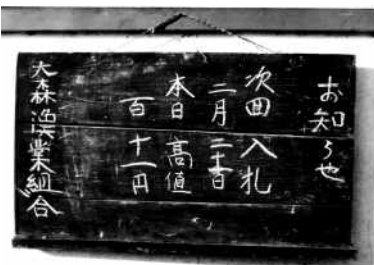 お知らせ
次回入札
二月
本日高値
百十一円
大森漁業組合